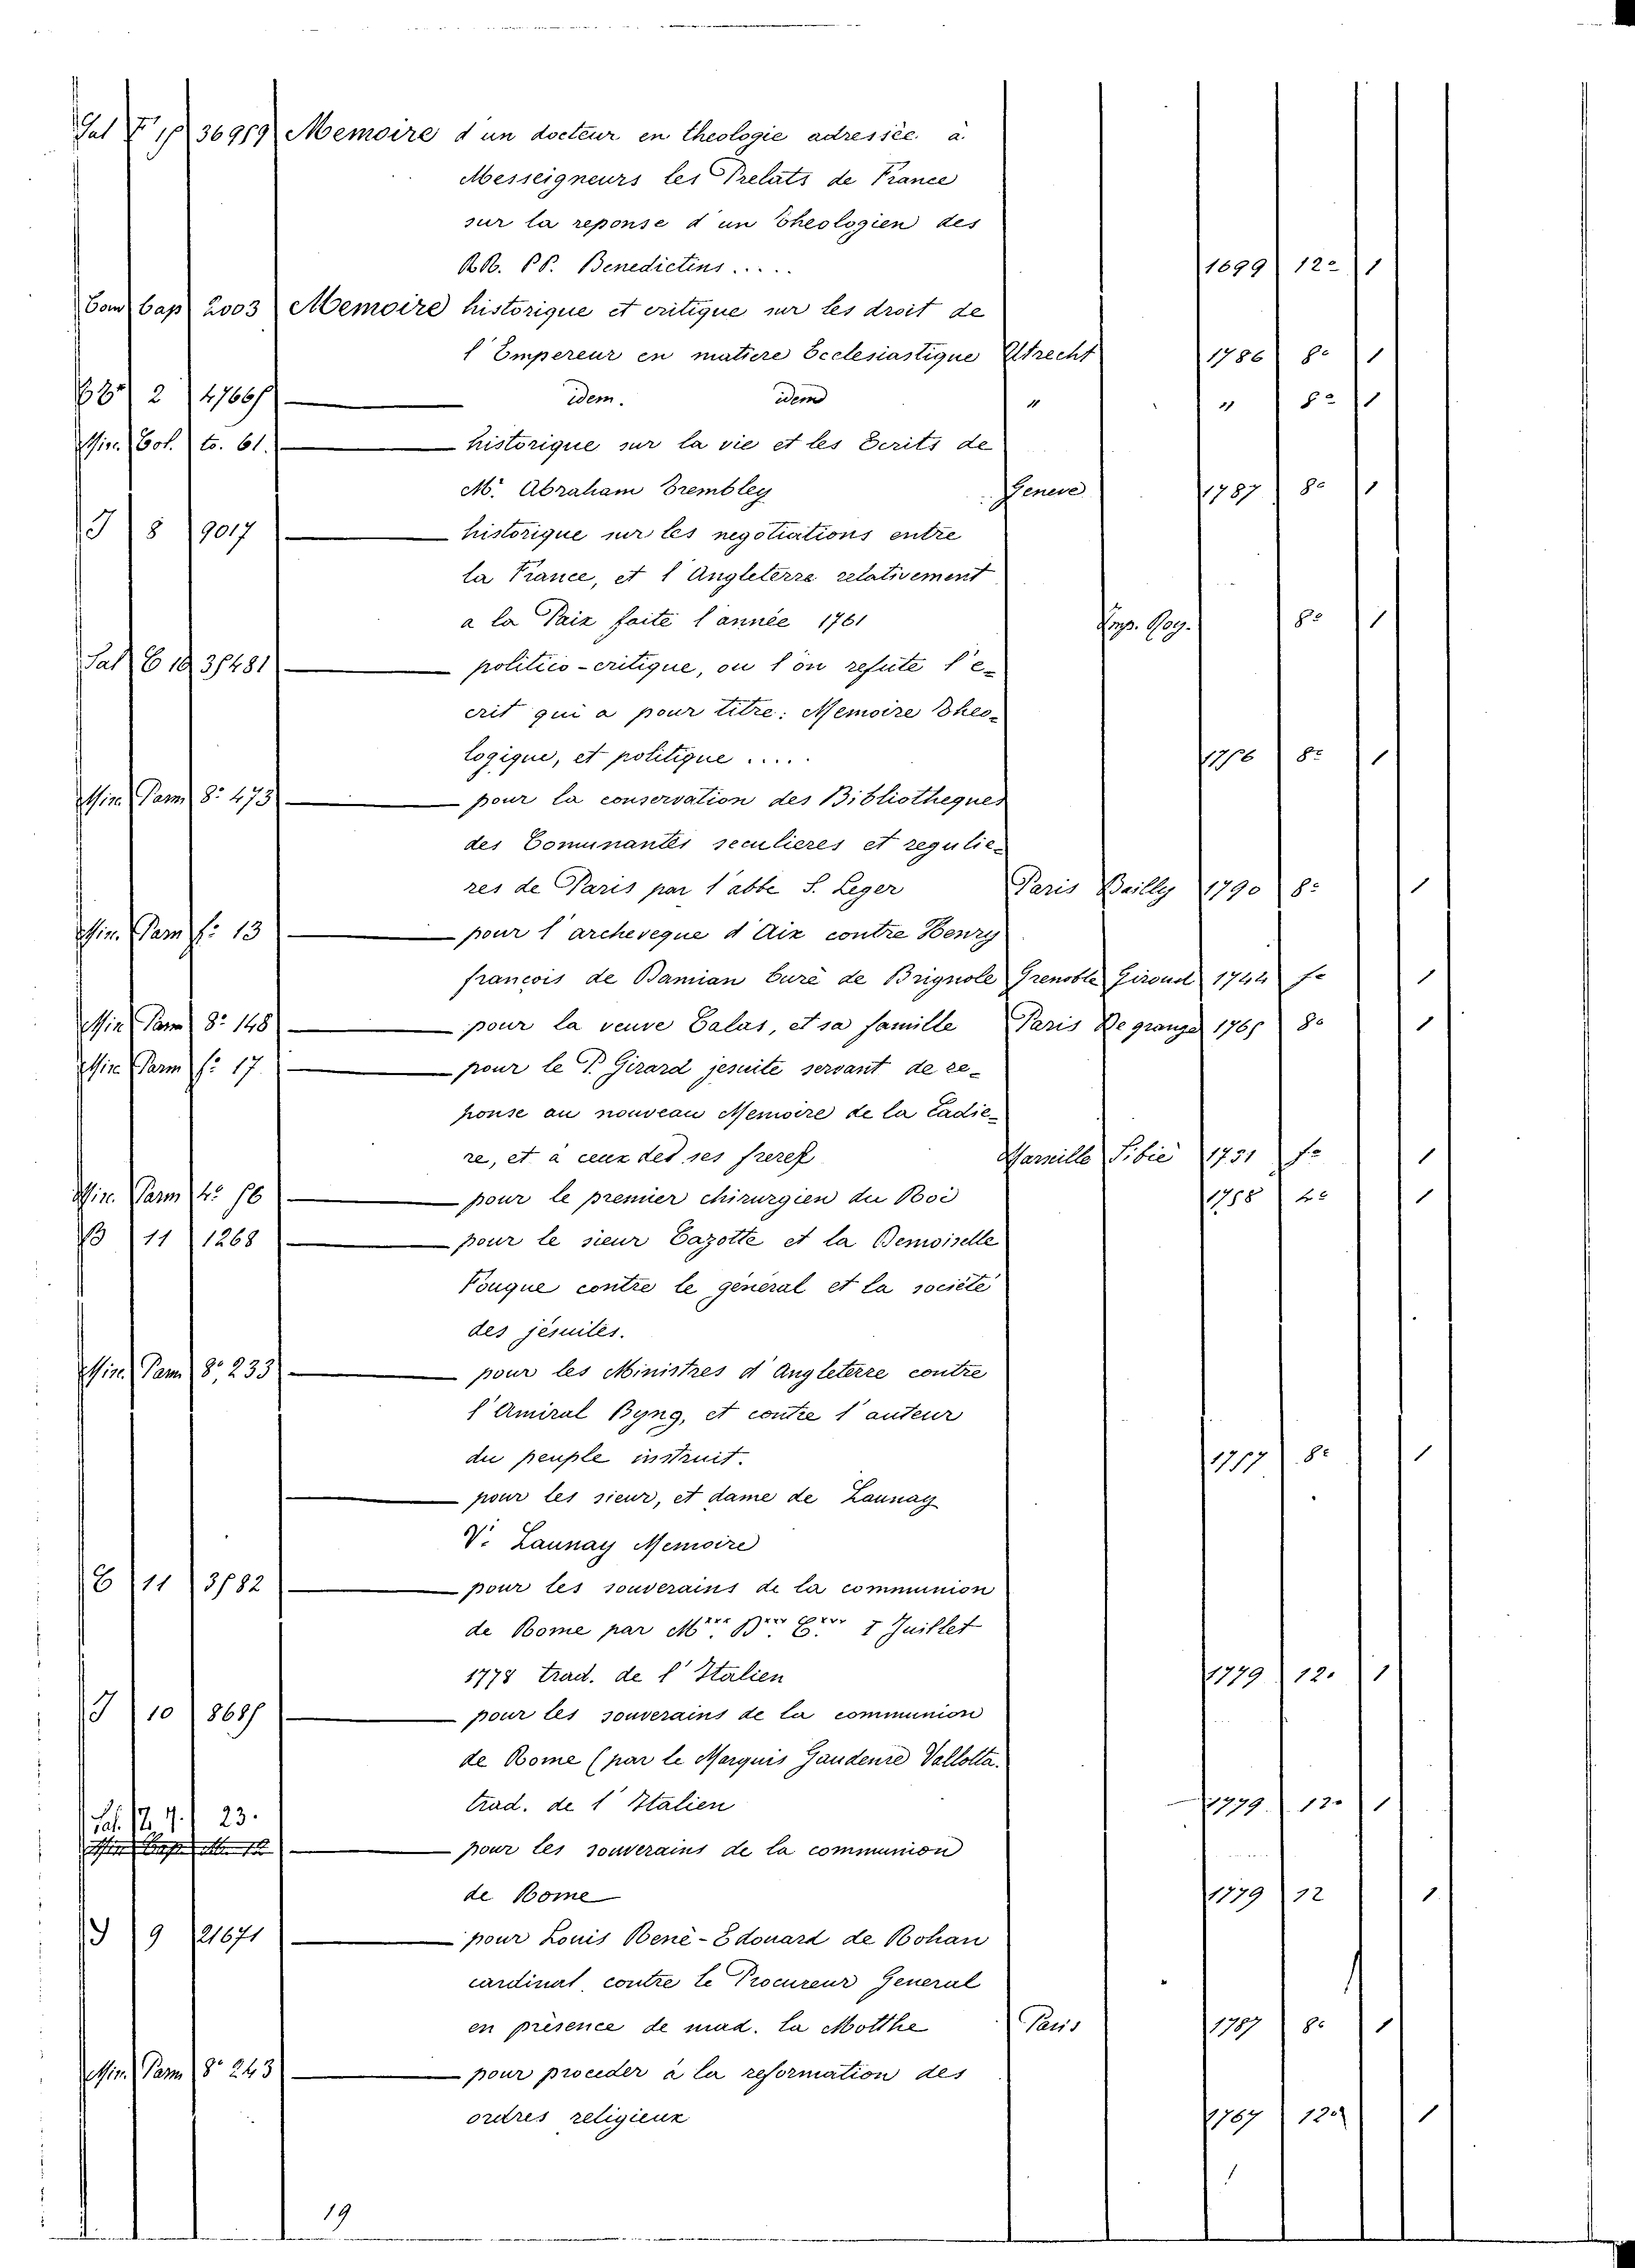 Sal F 18 36959 Memoire d'un docteur en theologie adressée a
Messeigneurs les Prelats de France
sur la reponse d'un Theologien des
RR. PP. Benedictins..... 1699 12º 1
Cam Cap 2003 Memoire historique et critique sur les droit de
l'Empereur en matiere Ecclesiastique Utrecht 1786 8º 1
2 47665 idem. idem " " 8º 1
Misc. Col. to. 61. historique sur la vie et les Ecrits de
M. Abraham Trembley Geneve 1787 8º 1
J 8 9017 historique sur les negotiations entre
la France, et l'Angleterre relativement
a la Paix faite l'année 1761 Imp. Roy. 8º 1
Sal C 18 35481 politico-critique, ou l'on refute l'e-
crit qui a pour titre: Memoire Theo-
logique, et politique ..... 1756 8º 1
Misc. Pam 8º 473 pour la conservation des Bibliotheques
des Comunantés seculieres et regulie-
res de Paris par l'abbe S. Leger Paris Bailly 1790 8º 1
Misc. Pam fº 13 pour l'archeveque d'Aix contre Henry
francois de Damian Curè de Brignole Grenoble Giroud 1744 fº 1
Misc Pam 8º 148 pour la veuve Calas, et sa famille Paris De grange 1765 8º 1
Misc Pam fº 17. pour le P. Girard jesuite servant de re-
ponse au nouveau Memoire de la Cadie-
re, et à ceux des ses freres Marseille Sibié 1731 fº 1
Misc. Pam 4º 56 pour le premier chirurgien du Roi 1758 4º 1
B 11 1268 pour le sieur Cazotte et la Demoiselle
Fouque contre le général et la societé
des jésuites.
Misc. Pam 8º, 233 pour les Ministres d'Angleterre contre
l'Amiral Byng, et contre l'auteur
du peuple instruit. 1757 8º 1
pour les sieur, et dame de Launay
V. Launay Memoire
C 11 3582 pour les souverains de la communion
de Rome par 1 Juillet
1778 trad. de l'Italien 1779 12º 1
J 10 8685 pour les souverains de la communion
de Rome (par le Marquis Gaudenre Vallotta.
trad. de l'Italien 1779. 12º 1
Sal. 23.
pour les souverains de la communion
de Rome 1779 12 1
J 9 21671 pour Louis Renè-Edouard de Rohan
cardinal contre le Procureur General
en présence de mad. la Motthe Paris 1787 8º 1
Misc. Pam 8º 243 pour proceder à la reformation des
ordres religieux 1767 12º 1
19